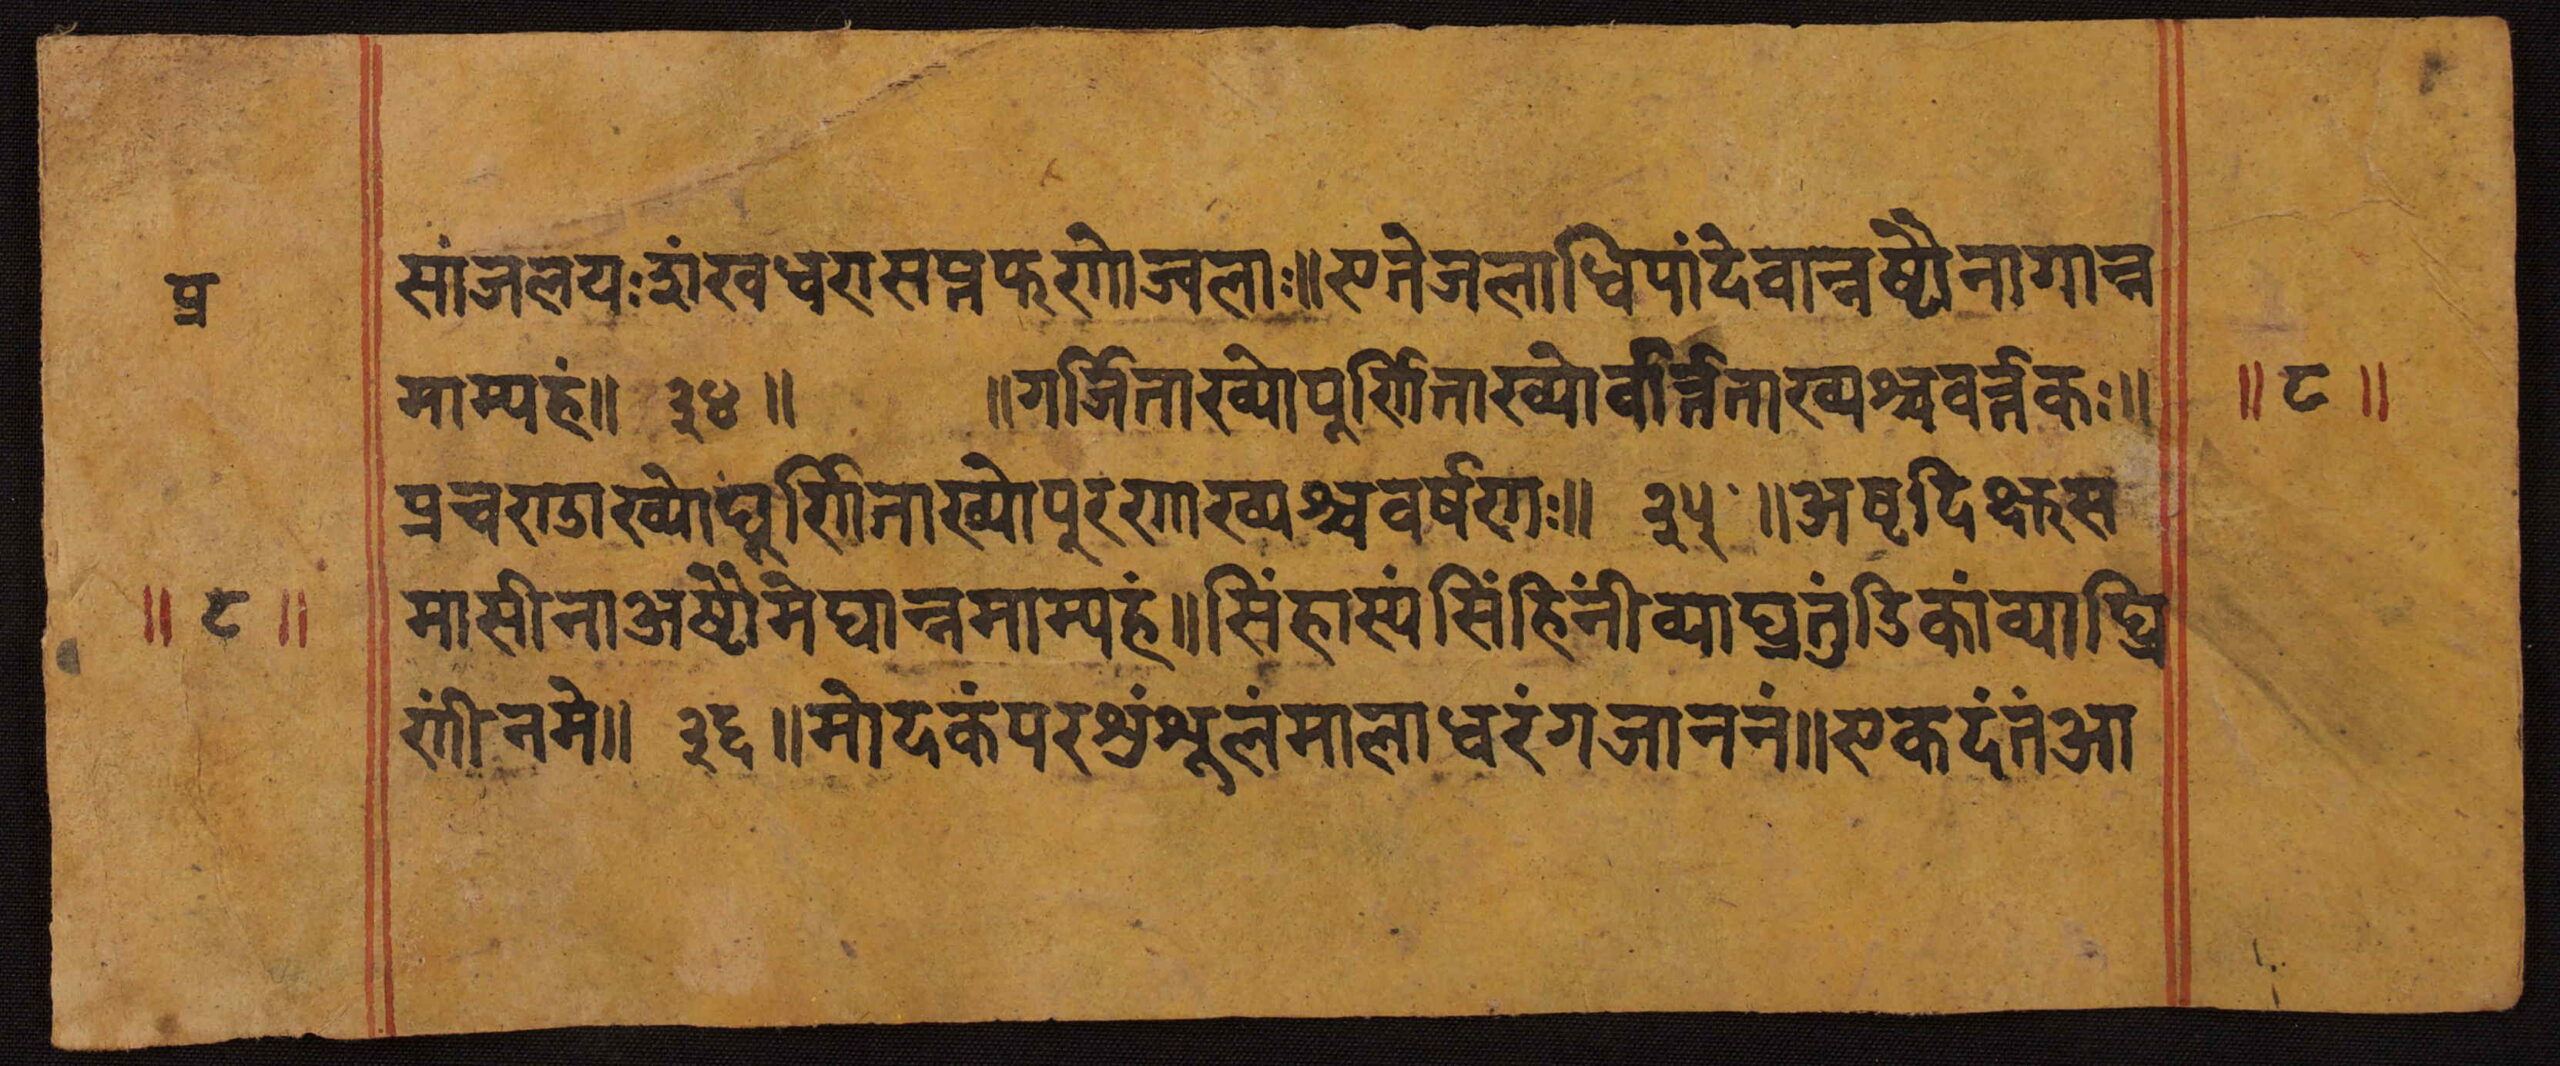 प्र
सांजलयःशंखधरासप्तफणोज्वलाः॥एतेजलाधिपांदेवान्नष्टौनागान्न
माम्यहं॥ ३४॥ ॥गर्जिताख्योपूर्णिताख्योवर्त्तिताख्यश्चवर्त्तकः॥
॥८॥
प्रचण्डाख्योघूर्णिताख्योपूरणाख्यश्चवर्षणः॥ ३५॥अष्टदिक्षुस
मासीनाअष्टौमेघान्नमाम्यहं॥सिंहास्यंसिंहिनींव्याघ्रतुंडिकांव्याघ्रि
॥८॥
णींनमे॥ ३६॥मोदकंपरशुंशूलंमालाधरंगजाननं॥एकदंतंआ